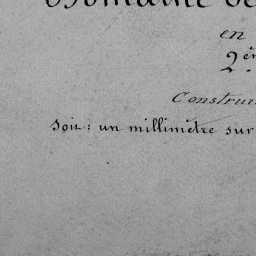 Domaine de
en
2ᵉ
Construi
Soit : un millimètre sur